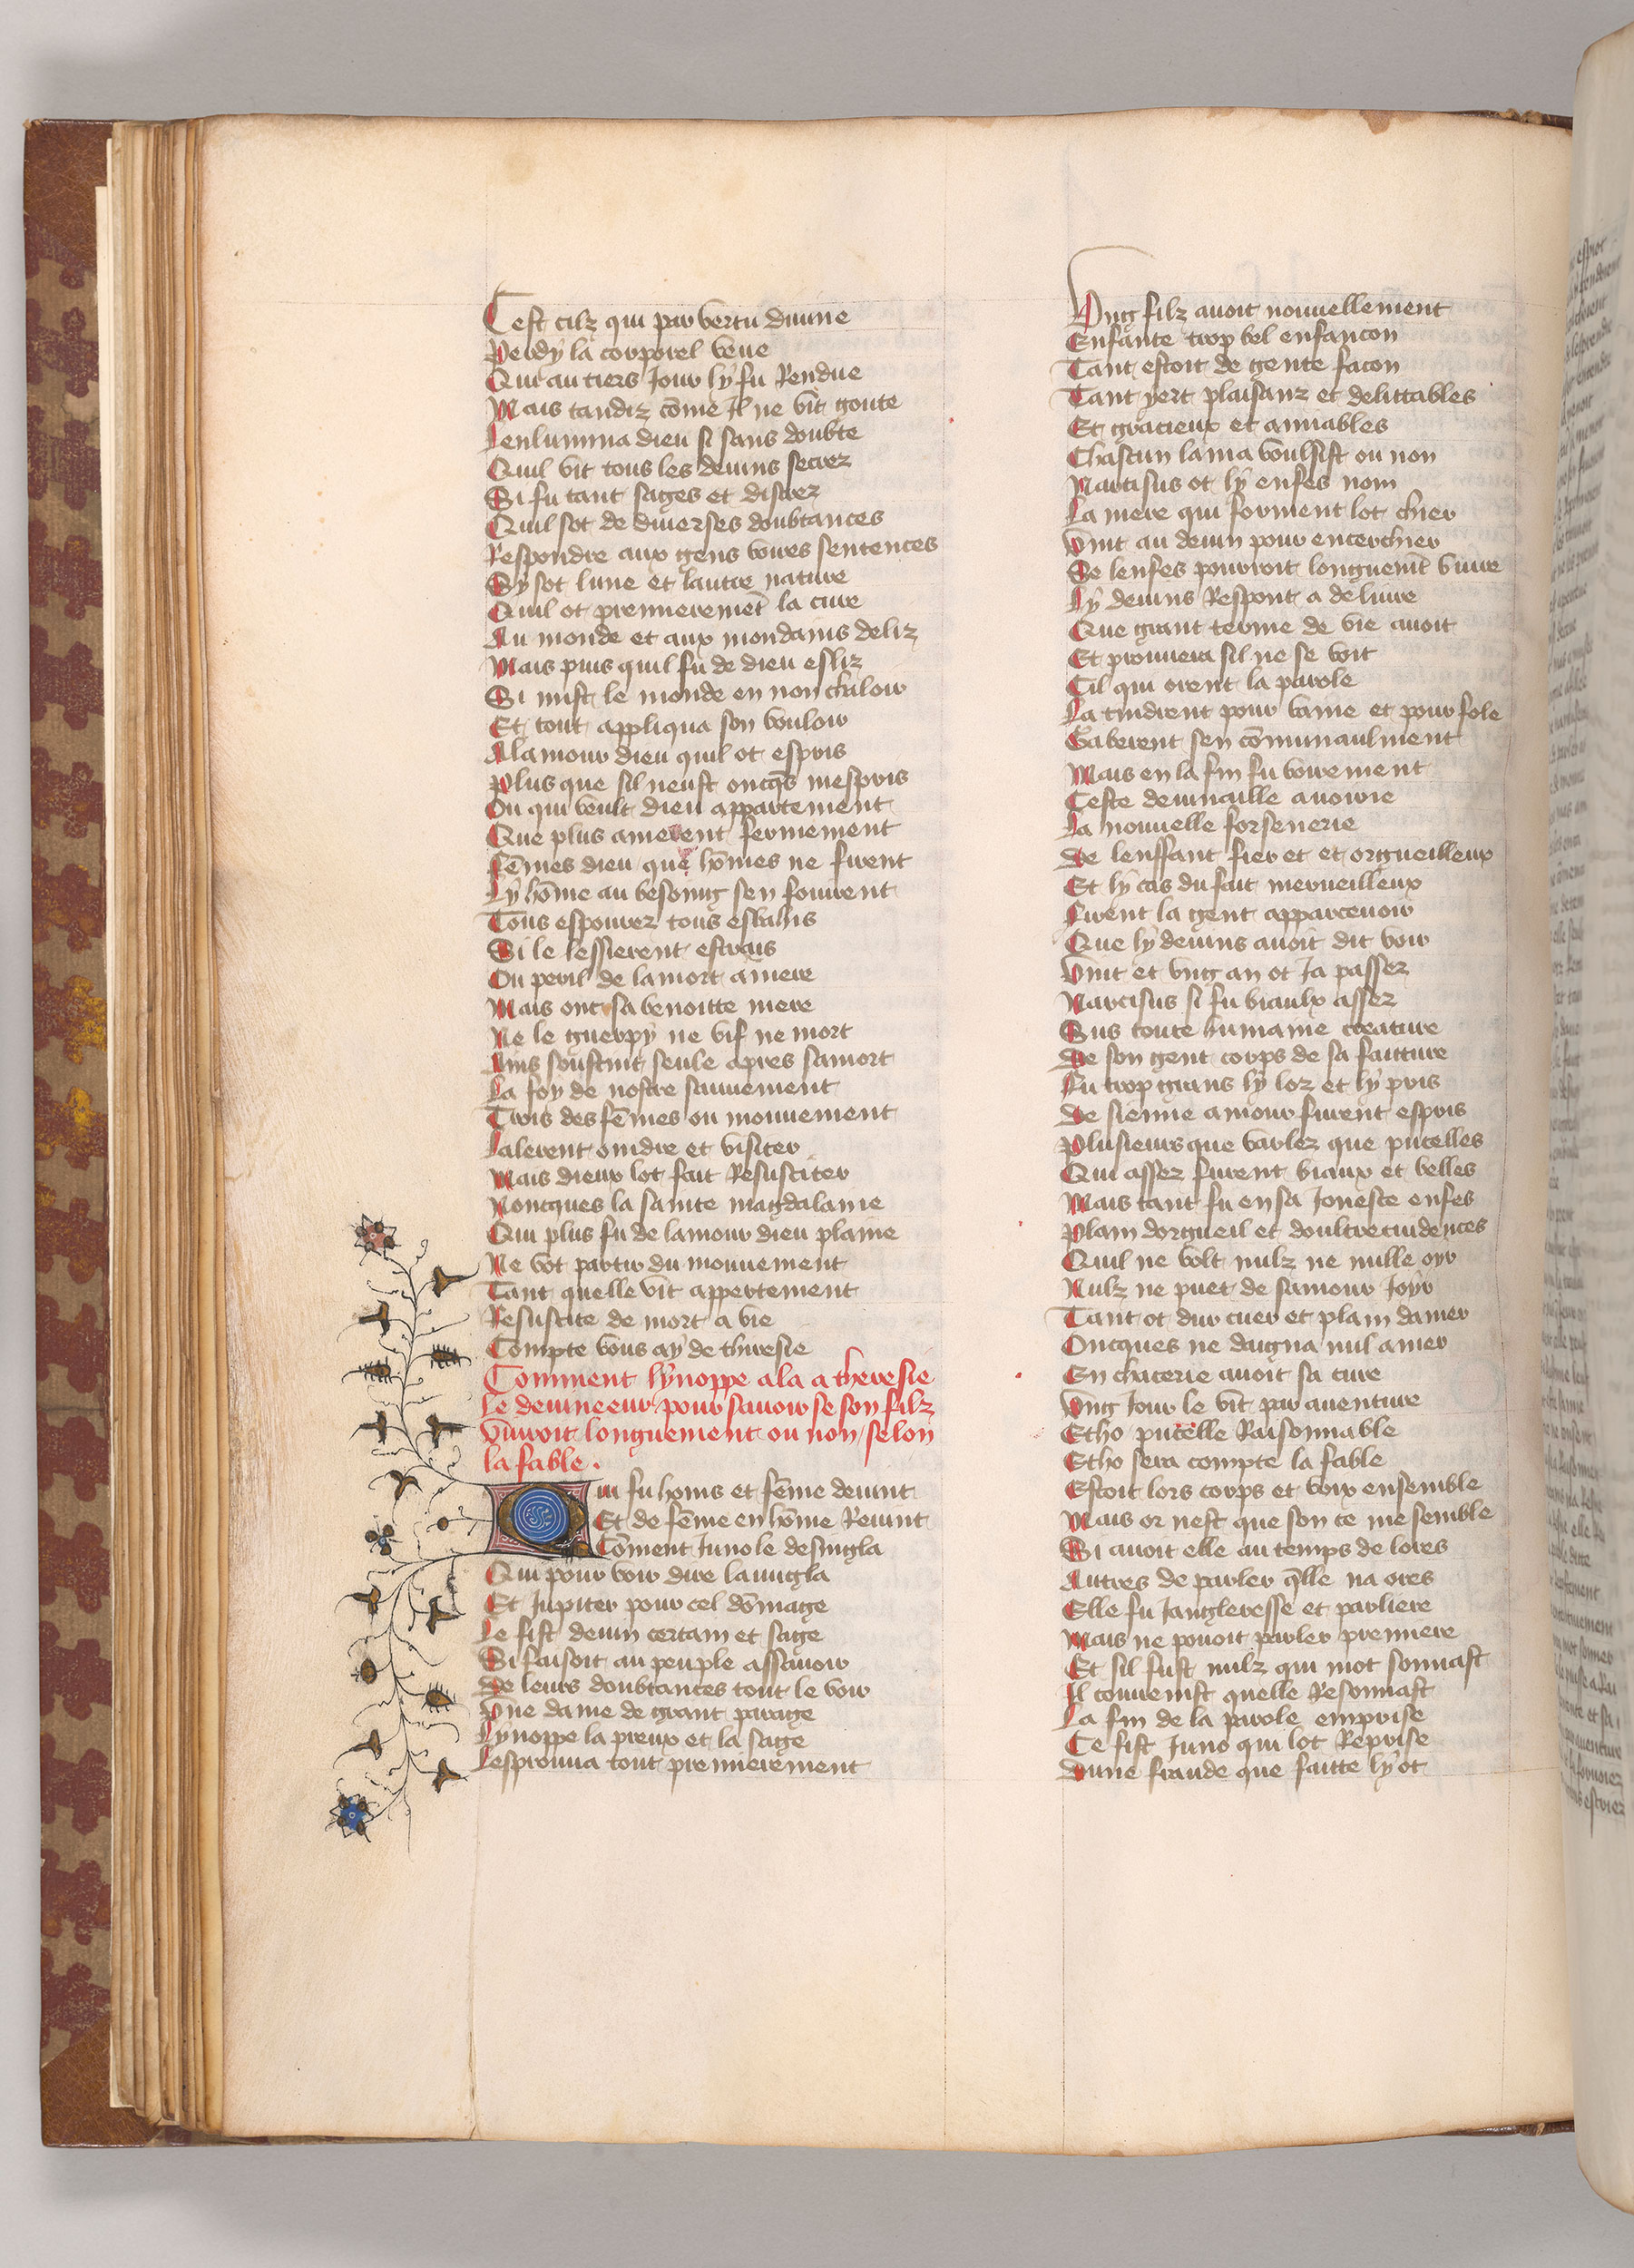 Cest cilz qui par vertu diuine
Perdy la corporel veue
Qui au tiers Jour ly fu Rendue
Mais tandiz cōme Il ne vit goute
Lenlumina dieu si sans doubte
Quil vit tous les deuins secrez
Si fu tant sages et discrez
Quil sot de diuerses doubtances
Respondre aux gens voires sentences
Sy sot lune et lautre nature
Quil ot premieremēt la cure
Au monde et aux mondains deliz
Mais puis quil fu de dieu esliz
Si mist le monde en non chaloir
Et tout appliqua son vouloir
A lamour dieu quil ot espris
Plus que sil neust oncqs mespris
Ou qui veult dieu appartement
Que plus amerent fermement
Fēmes dieu que hōmes ne firent
Ly hōme au besoing sen fouirent
Tous espourez tous esbahis
Si le lessierent estrais
Ou peril de la mort amere
Mais onc sa benoitte mere
Ne le guerpy ne vif ne mort
Ains soustint seule apres sa mort
La foy de nostre sauuement
Trois des fēmes ou monuement
Lalerent oindre et visiter
Mais dieux lot fait Resusciter
Noncques la sainte magdalaine
Qui plus fu de lamour dieu plaine
Ne vot partir du monuement
Tant quelle vit appertement
Resuscite de mort a vie
Compte vous ay de thiresie
Comment lynoppe ala a theresie
Le deuineeur pour sauoir se son filz
viuroit longuement ou non / selon
la fable .
Qui fu homs et fēme deuint
Et de fēme en hōme Reuint
Cōment Juno le desingla
Qui pour voir dire lauugla
Et Jupiter pour cel dōmage
Le fist deuin certain et sage
Si faisoit au peuple assauoir
De leurs doubtances tout le voir
Vne dame de grant parage
Lynoppe la preux et la sage
Lesprouua tout premierement
Vng filz auoit nouuellement
Enfante trop bel enfancon
Tant estoit de gente facon
Tant yert plaisanz et delittables
Et gracieux et amiables
Chascun lama voulsist ou non
Narcisus ot ly enfes nom
La mere qui forment lot chier
Vint au deuin pour encerchier
Se lenfes pourroit longuemēt viure
Ly deuins Respont a deliure
Que grant terme de vie auoit
Et prouuera sil ne se voit
Cil qui oient la parole
La tindrent pour vaine et pour fole
Gaberent sen cōmunaulment
Mais en la fin fu voirement
Ceste deuinaille auoirie
La nouuelle forsenerie
De lenffant fier et et orgueilleux
Et ly cas du fait merueilleux
Firent la gent apparceuoir
Que ly deuins auoit dit voir
Vint et vng an ot Ja passez
Narcisus si fu biaulx assez
Sus toute humaine creature
De son gent corps de sa faitture
Fu trop grans ly loz et ly pris
De sienne amour furent espris
Plusieurs que varlez que pucelles
Qui assez furent biaux et belles
Mais tant fu en sa Jonesce enfes
Plain dorgueil et doultrecuidences
Quil ne volt nulz ne nulle oyr
Nulz ne puet de samour Joyr
Tant ot dur cuer et plain damer
Oncques ne daigna nul amer
En chacerie auoit sa cure
Vng Jour le vit par auenture
Etho pucelle Raisonnable
Etho sera compte la fable
Estoit lors corps et voix ensemble
Mais or nest que son ce me semble
Si auoit elle au temps de lores
Autres de parler qlle na ores
Elle fu Jangleresse et parliere
Mais ne pouoit parler premiere
Et sil fust nulz qui mot sonnast
Il conuenist quelle Resonnast
La fin de la parole emprise
Ce fist Juno qui lot Reprise
Dune fraude que faitte ly ot